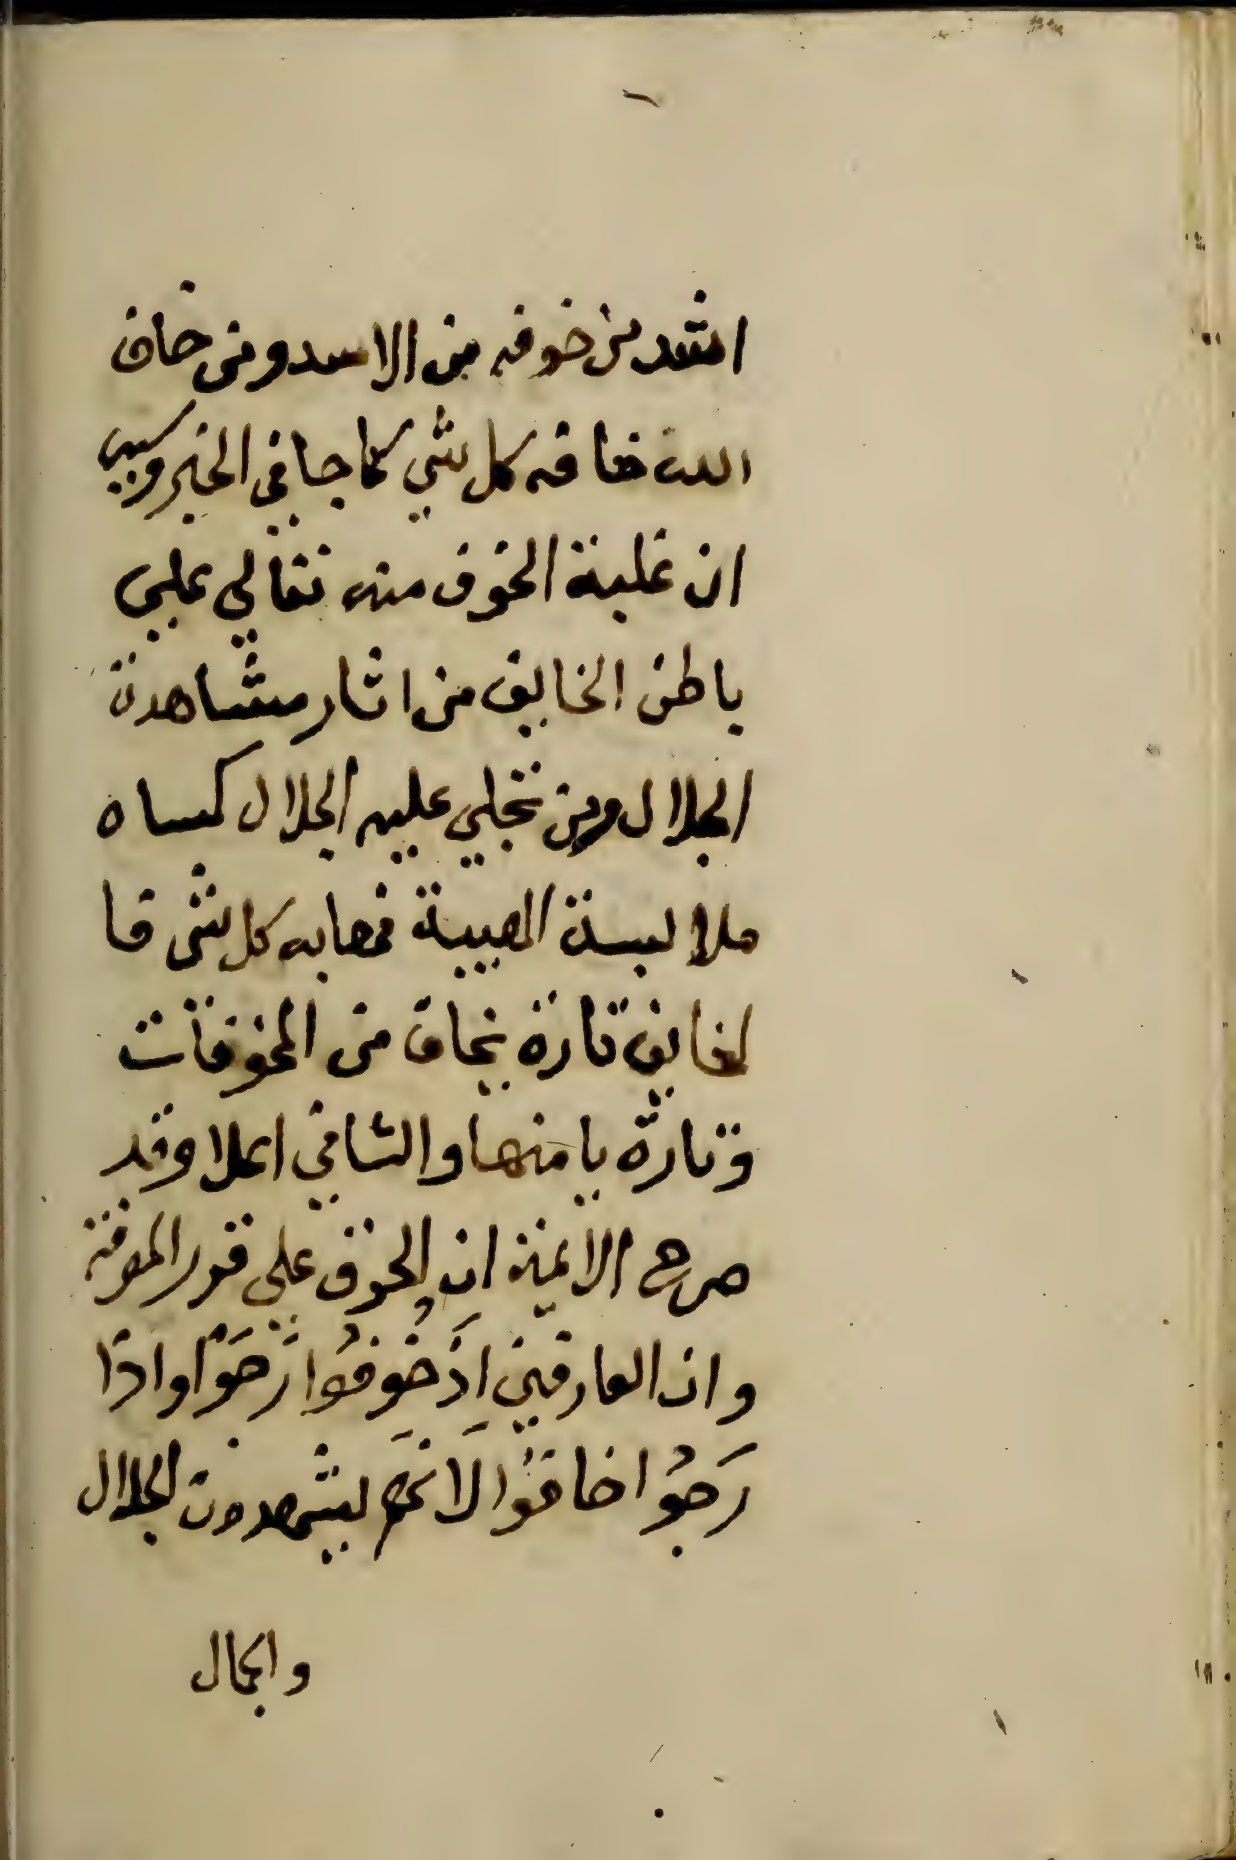 اشد من خوفه من الاسد ومن خاف
الله خافه كل شي كما جا في الخبر وسببه
ان غلبة الخوف منه تعالي علي
باطن الخايف من اثار مشاهدة
الجلال ومن تجلي عليه الجلال كساه
ملابسة الهيبة فهابه كل شي فا
لخايف تارة يخاف من المخوفات
وتارة يامنها والثاني اعلا وقد
صرح الايمة ان الخوف علي قدر المعرفة
وان العارفين اِذَ خُوفُوا رَجَوْا واذا
رَجُوا خافُوا لَانهَم يشهدون الجلال
والجمال